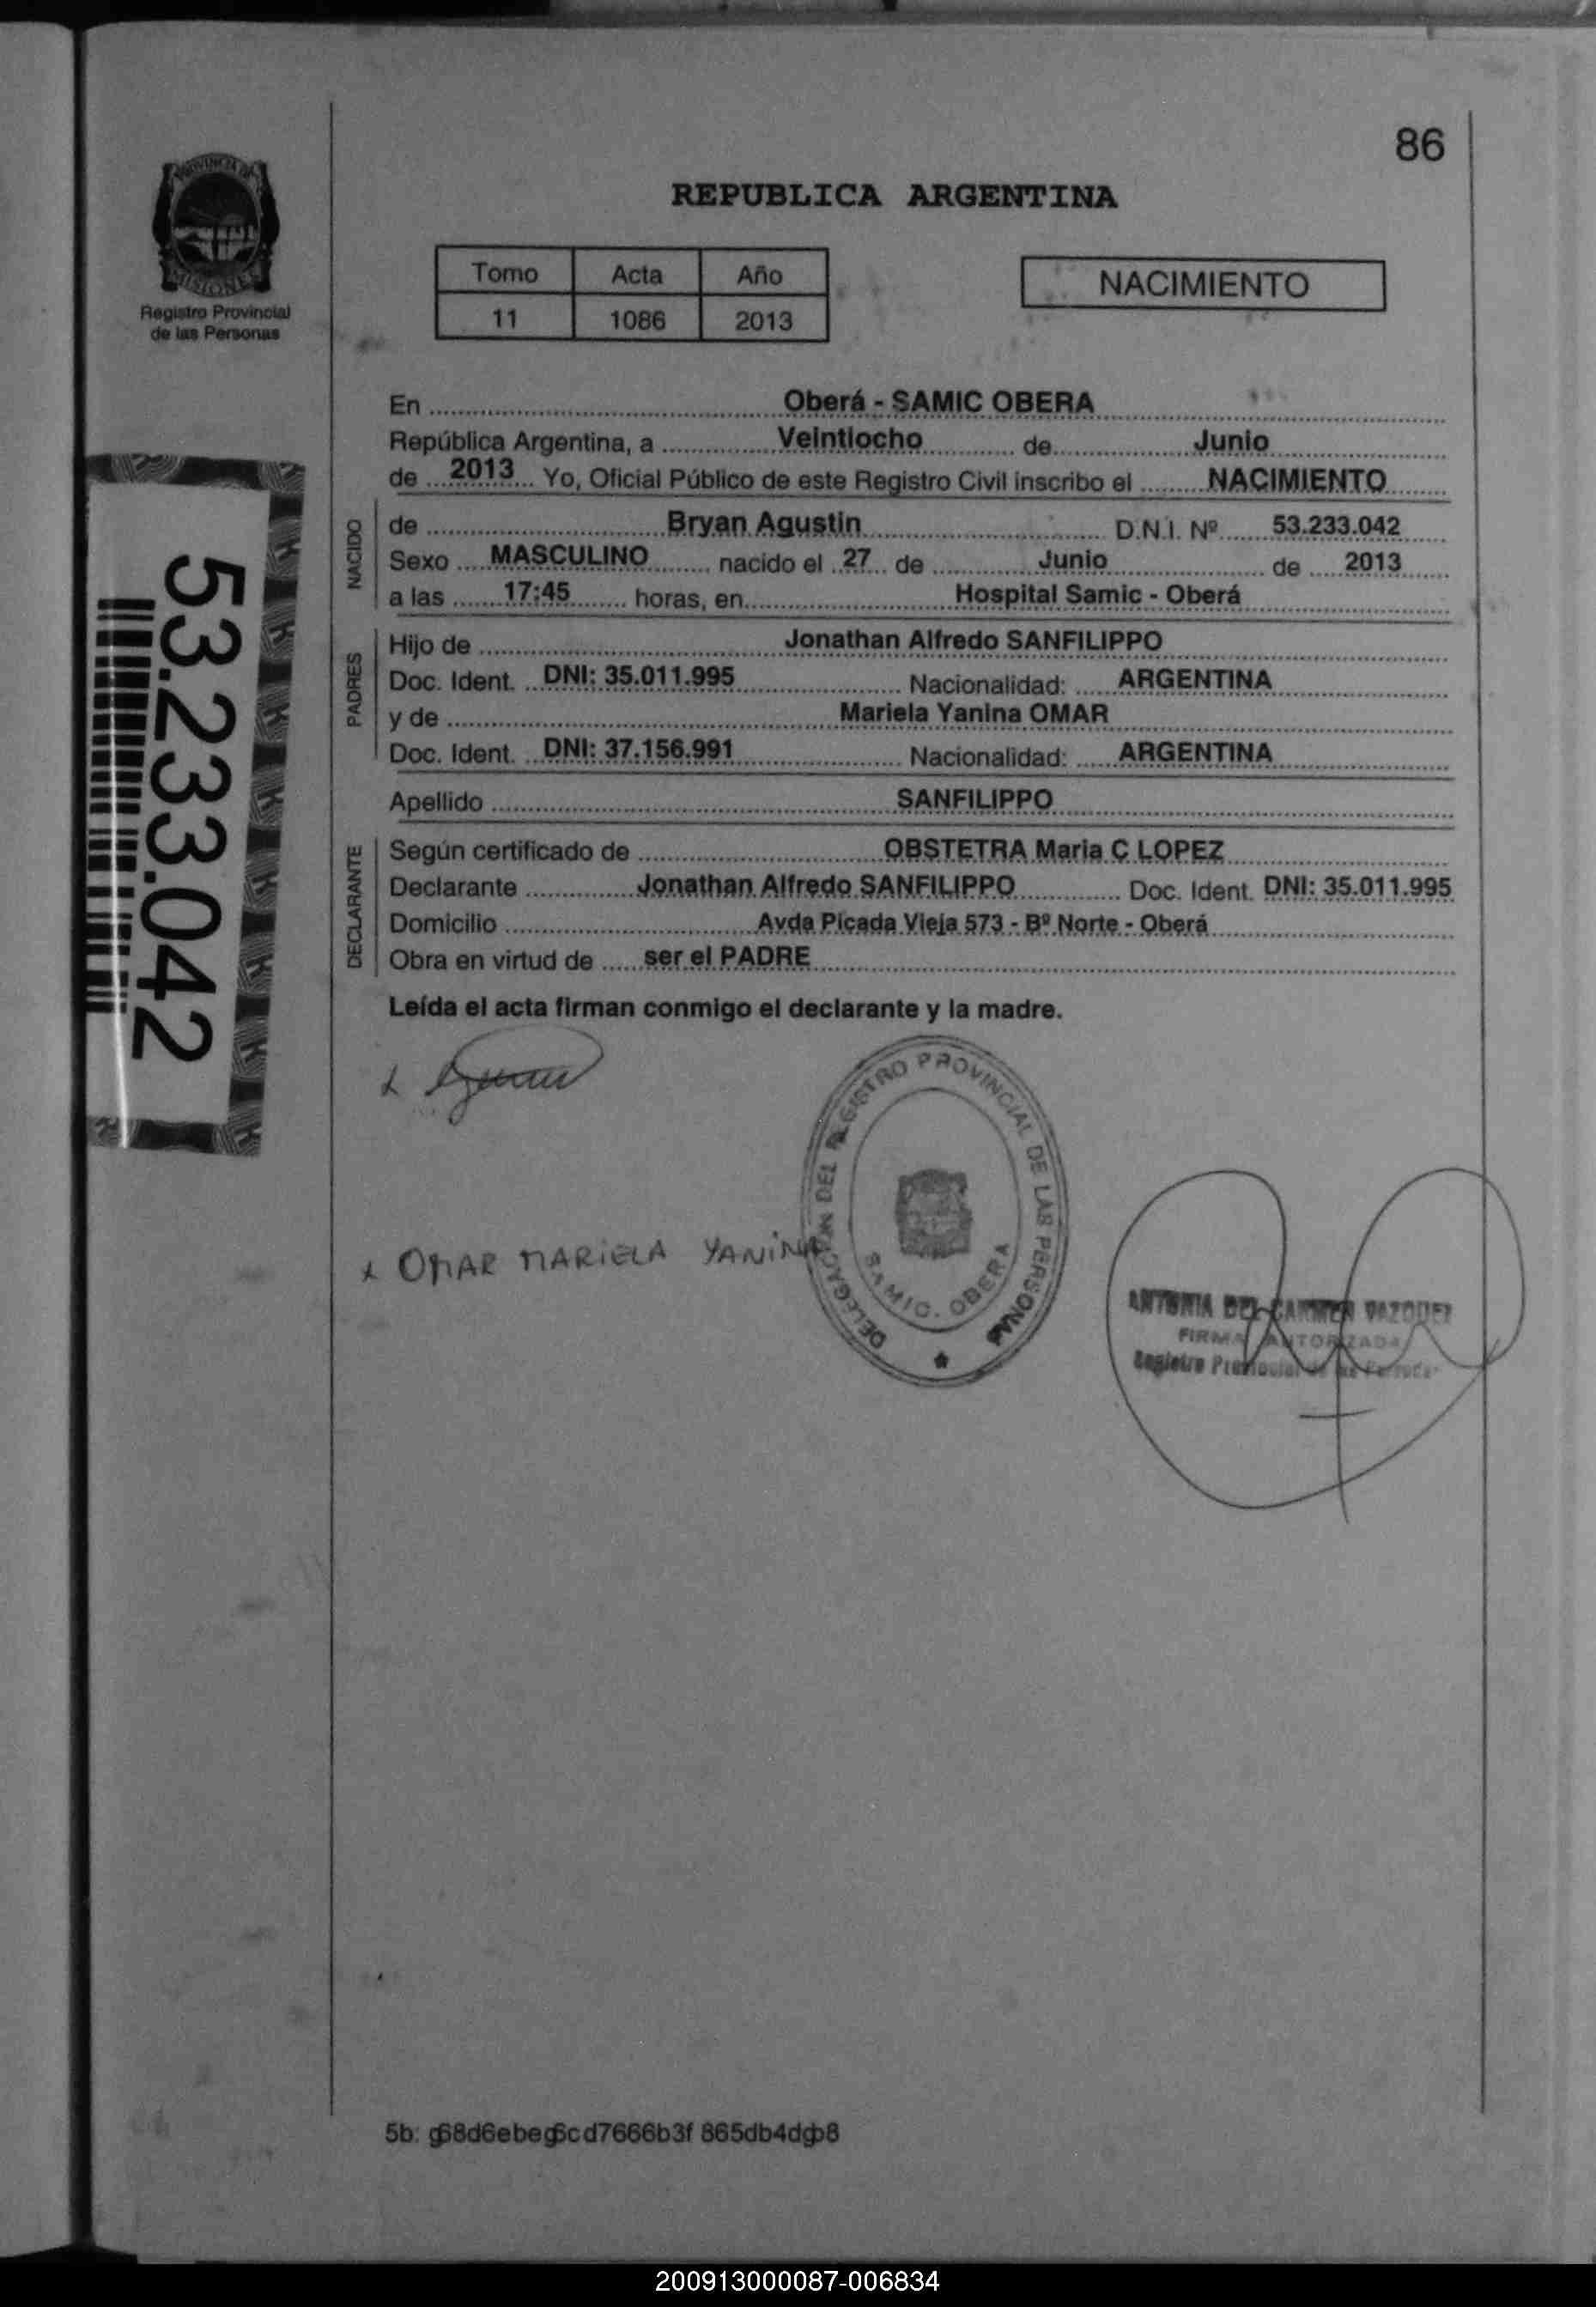 86
PROVINCIA DE
MISIONES
Registro Provincial
de las Personas
REPUBLICA ARGENTINA
Tomo Acta Año
11 1086 2013
NACIMIENTO
En Oberá - SAMIC OBERA
República Argentina, a Veintiocho de Junio
de 2013 Yo, Oficial Público de este Registro Civil inscribo el NACIMIENTO
NACIDO
de Bryan Agustin D.N.I. Nº 53.233.042
Sexo MASCULINO nacido el 27 de Junio de 2013
a las 17:45 horas, en Hospital Samic - Oberá
PADRES
Hijo de Jonathan Alfredo SANFILIPPO
Doc. Ident. DNI: 35.011.995 Nacionalidad: ARGENTINA
y de Mariela Yanina OMAR
Doc. Ident. DNI: 37.156.991 Nacionalidad: ARGENTINA
Apellido SANFILIPPO
DECLARANTE
Según certificado de OBSTETRA Maria C LOPEZ
Declarante Jonathan Alfredo SANFILIPPO Doc. Ident. DNI: 35.011.995
Domicilio Avda Picada Vieja 573 - Bº Norte - Oberá
Obra en virtud de ser el PADRE
Leída el acta firman conmigo el declarante y la madre.
53.233.042
x OMAR MARIELA YANINA
DELEGACION DEL REGISTRO PROVINCIAL DE LAS PERSONAS
SAMIC. OBERA
ANTONIA DEL CARMEN VAZQUEZ
FIRMA AUTORIZADA
Registro Provincial de las Personas
200913000087-006834